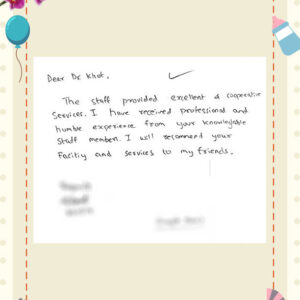 Dear Dr Khot,
The staff provided excellent & cooperative
services. I have received professional and
humble experience from your knowledgable
staff member. I will recommend your
Facility and services to my friends.